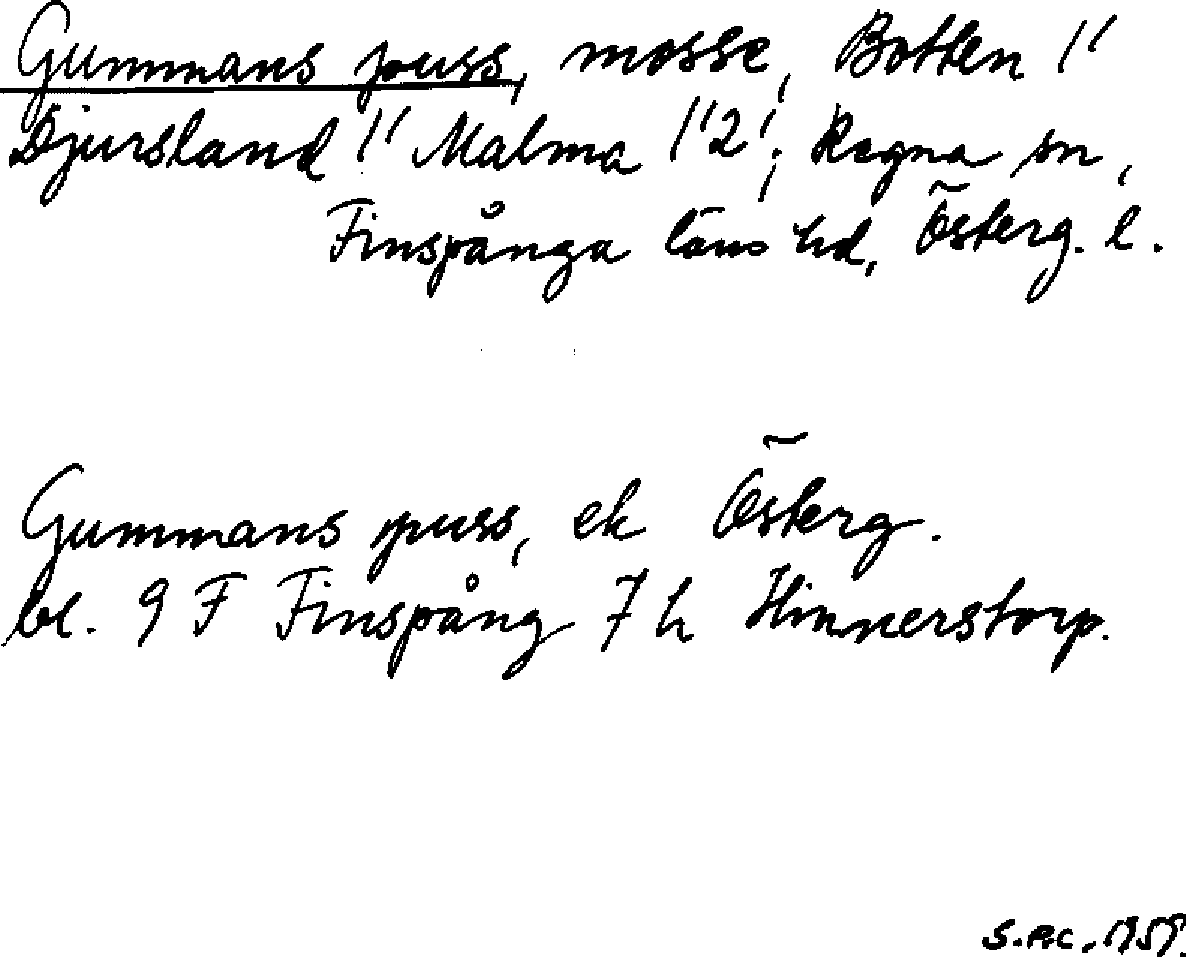 Gummans puss, mosse, Botten 1'
Djursland 1' Malma 1'2'; Regna sn,
Finspånga läns hd, Österg. l.
Gummans puss, ek Österg.
bl. 9 F Finspång 7 h Hinnerstorp.
1959.